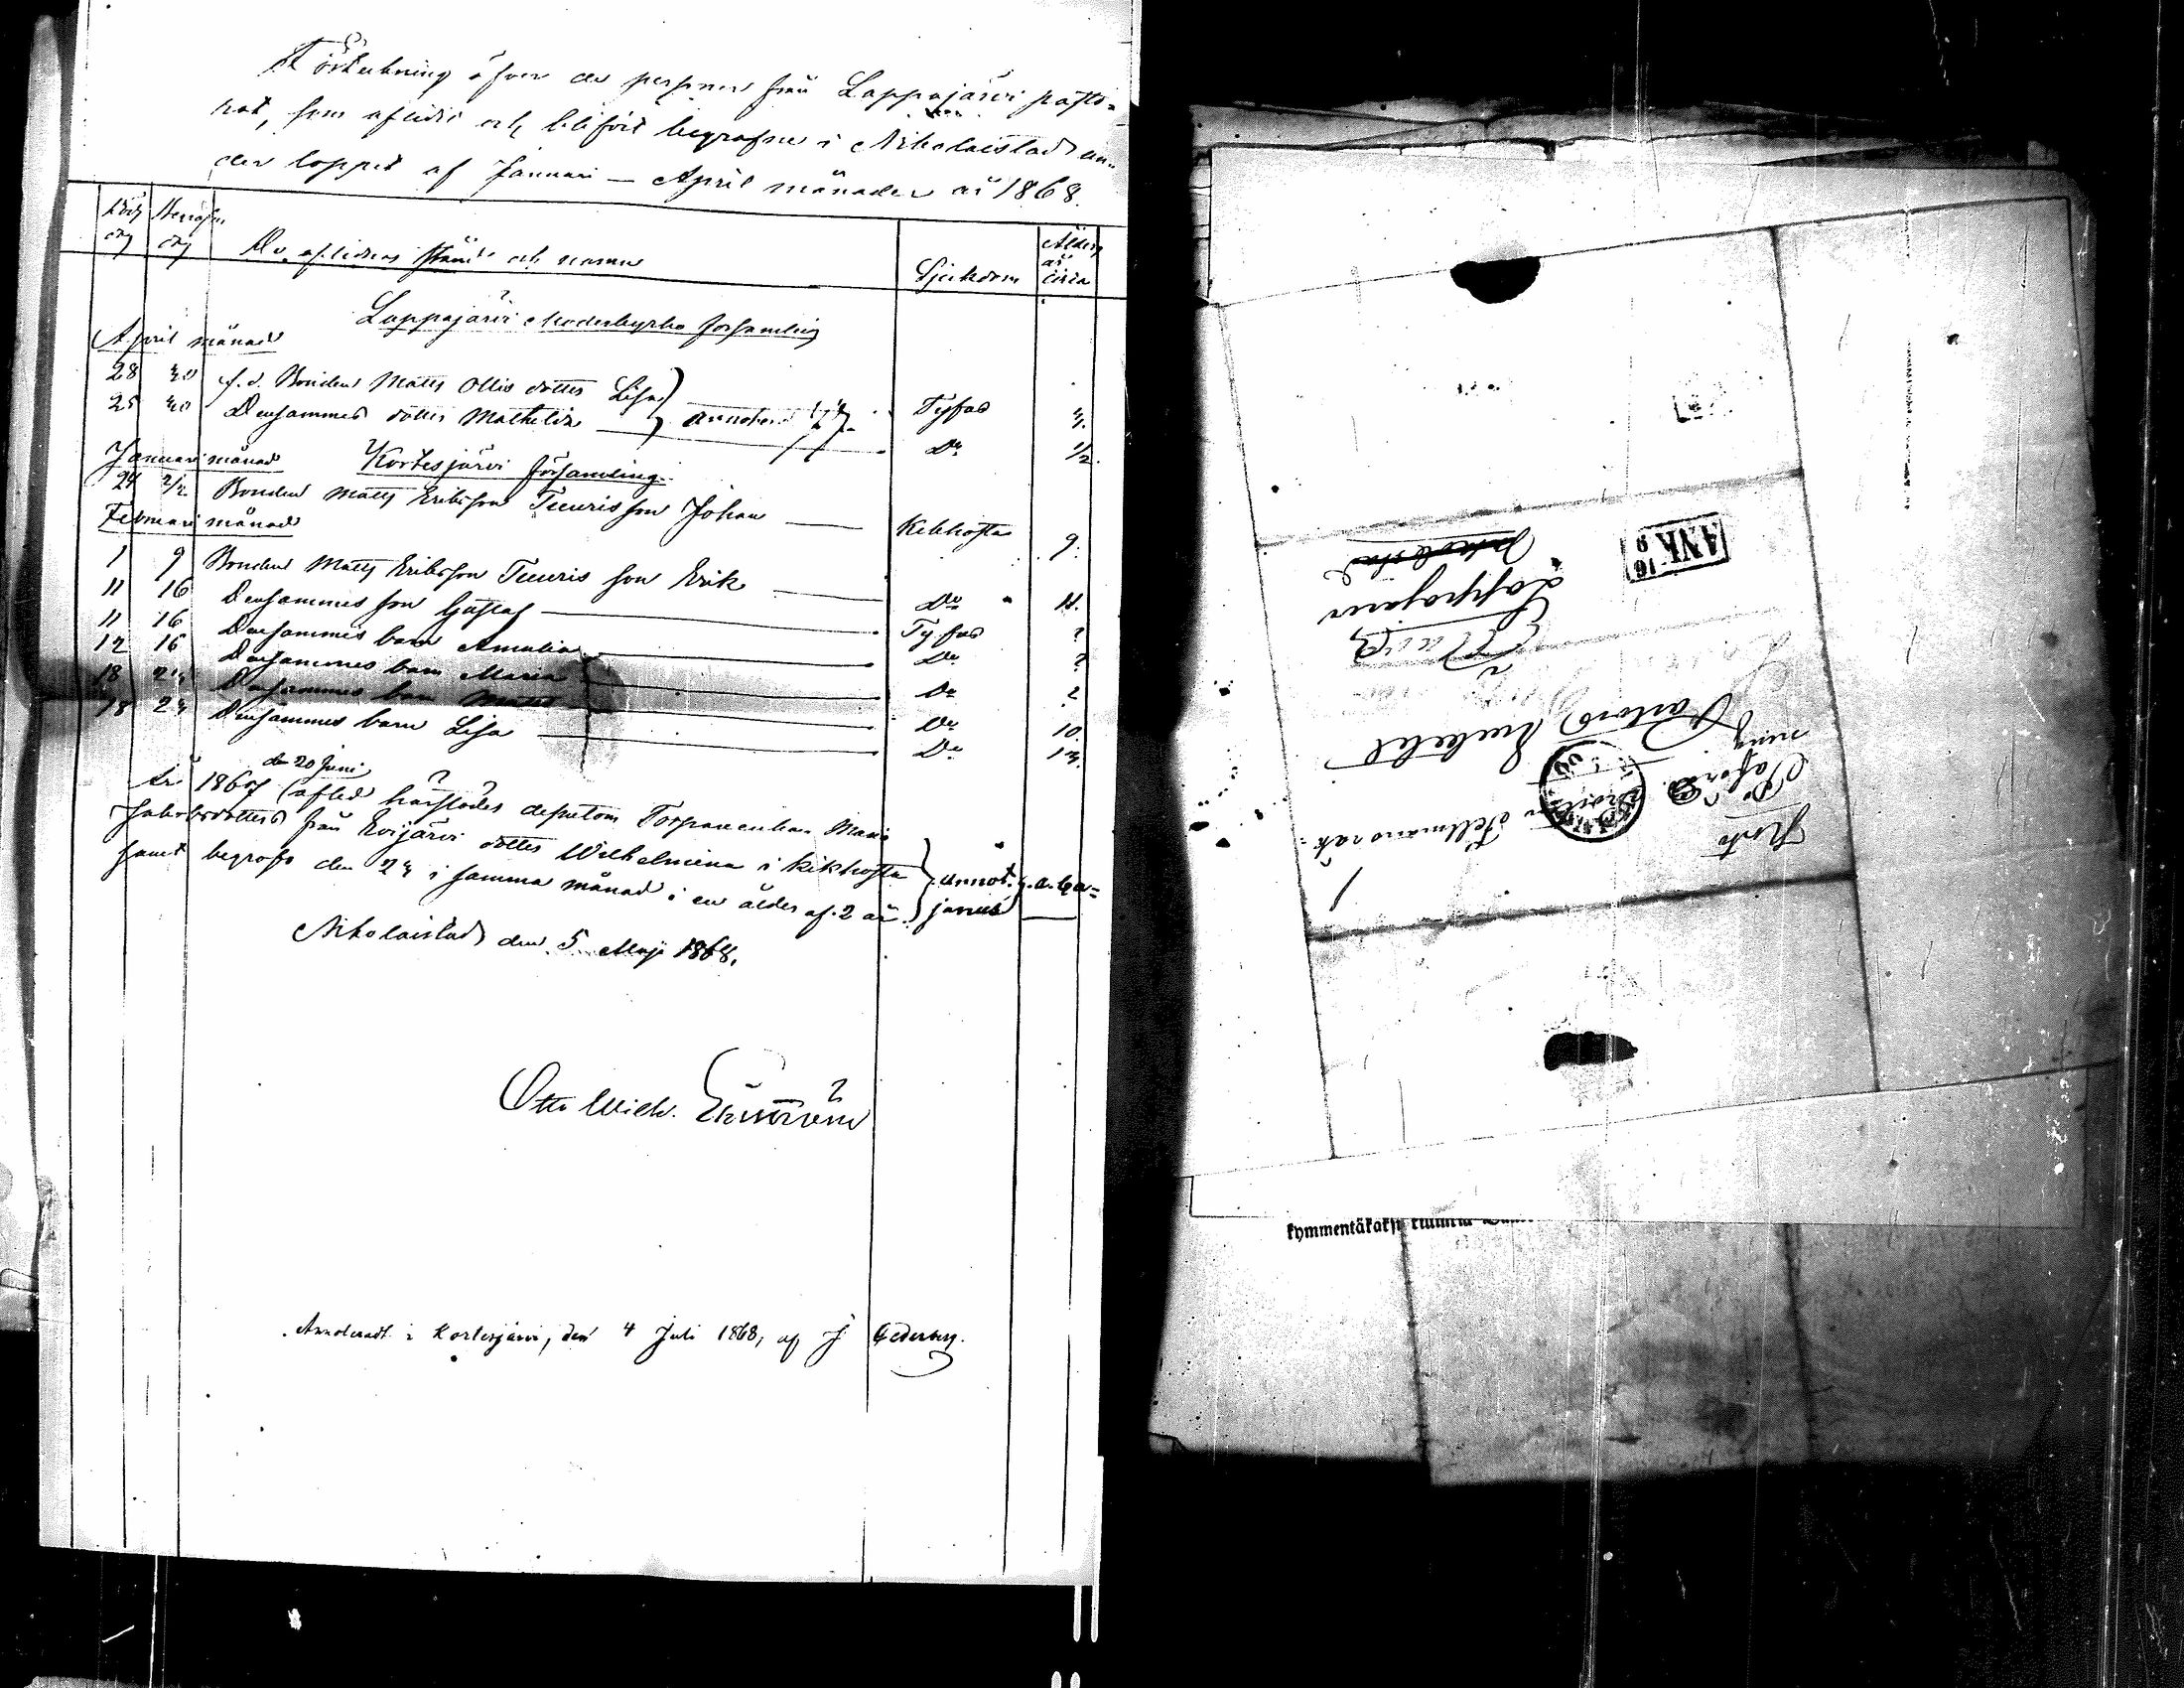 Förteckning öfver de personer från Lappajärvi pasto-
rat, som aflidit och blifvit begrafne i Nikolaistad un-
der loppet af Januari — April månader år 1868.
Död Begrafn. De aflidnes stånd och namn Sjukdom Ålder
dag dag år circa
Lappajärvi Moderkyrko församling
April månad
28 30 f.d. Bonden Matts Ollis dotter Lisa Tyfus 4.
25 30 Densammes dotter Mathilda annoterad Do 1/2.
Januari månad Kortesjärvi församling
24 2/2 Bonden Matts Eriksson Tuuris son Johan Kikhosta 9.
Februari månad
1 9 Bonden Matts Eriksson Tuuris son Erik Do 11.
11 16 Densammes son Gustaf Tyfus ?
11 16 Densammes barn Amalia Do ?
12 16 Densammes barn Maria Do 2
18 24 Densammes barn Matts Do 10.
18 24 Densammes barn Lisa Do 13.
den 20 Juni
År 1867 afled härstädes Torparenkan Maria
Jakobsdotters från Evijärvi dotter Wilhelmina i kikhosta
samt begrofs den 24 i samma månad i en ålder af 2 år. annot.
Nikolaistad den 5 Maji 1868.
Otto Wilh.
Annoteradt i Kortesjärvi, den 4 Juli 1868, af J Cederberg.
ANK 16
9
Lappajärvi
Pastors Embetet
Fellmans
kymmentäkaksi